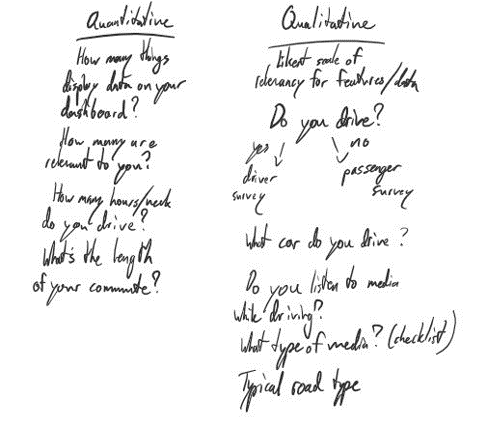 Quantitative
How many things
display data on your
dashboard?
How many are
relevant to you?
How many hours/week
do you drive?
What's the length
of your commute?
Qualitative
Likert scale of
relevancy for features/data
Do you drive?
yes
no
driver
survey
passenger
survey
What car do you drive?
Do you listen to media
while driving?
What type of media? (checklist)
Typical road type